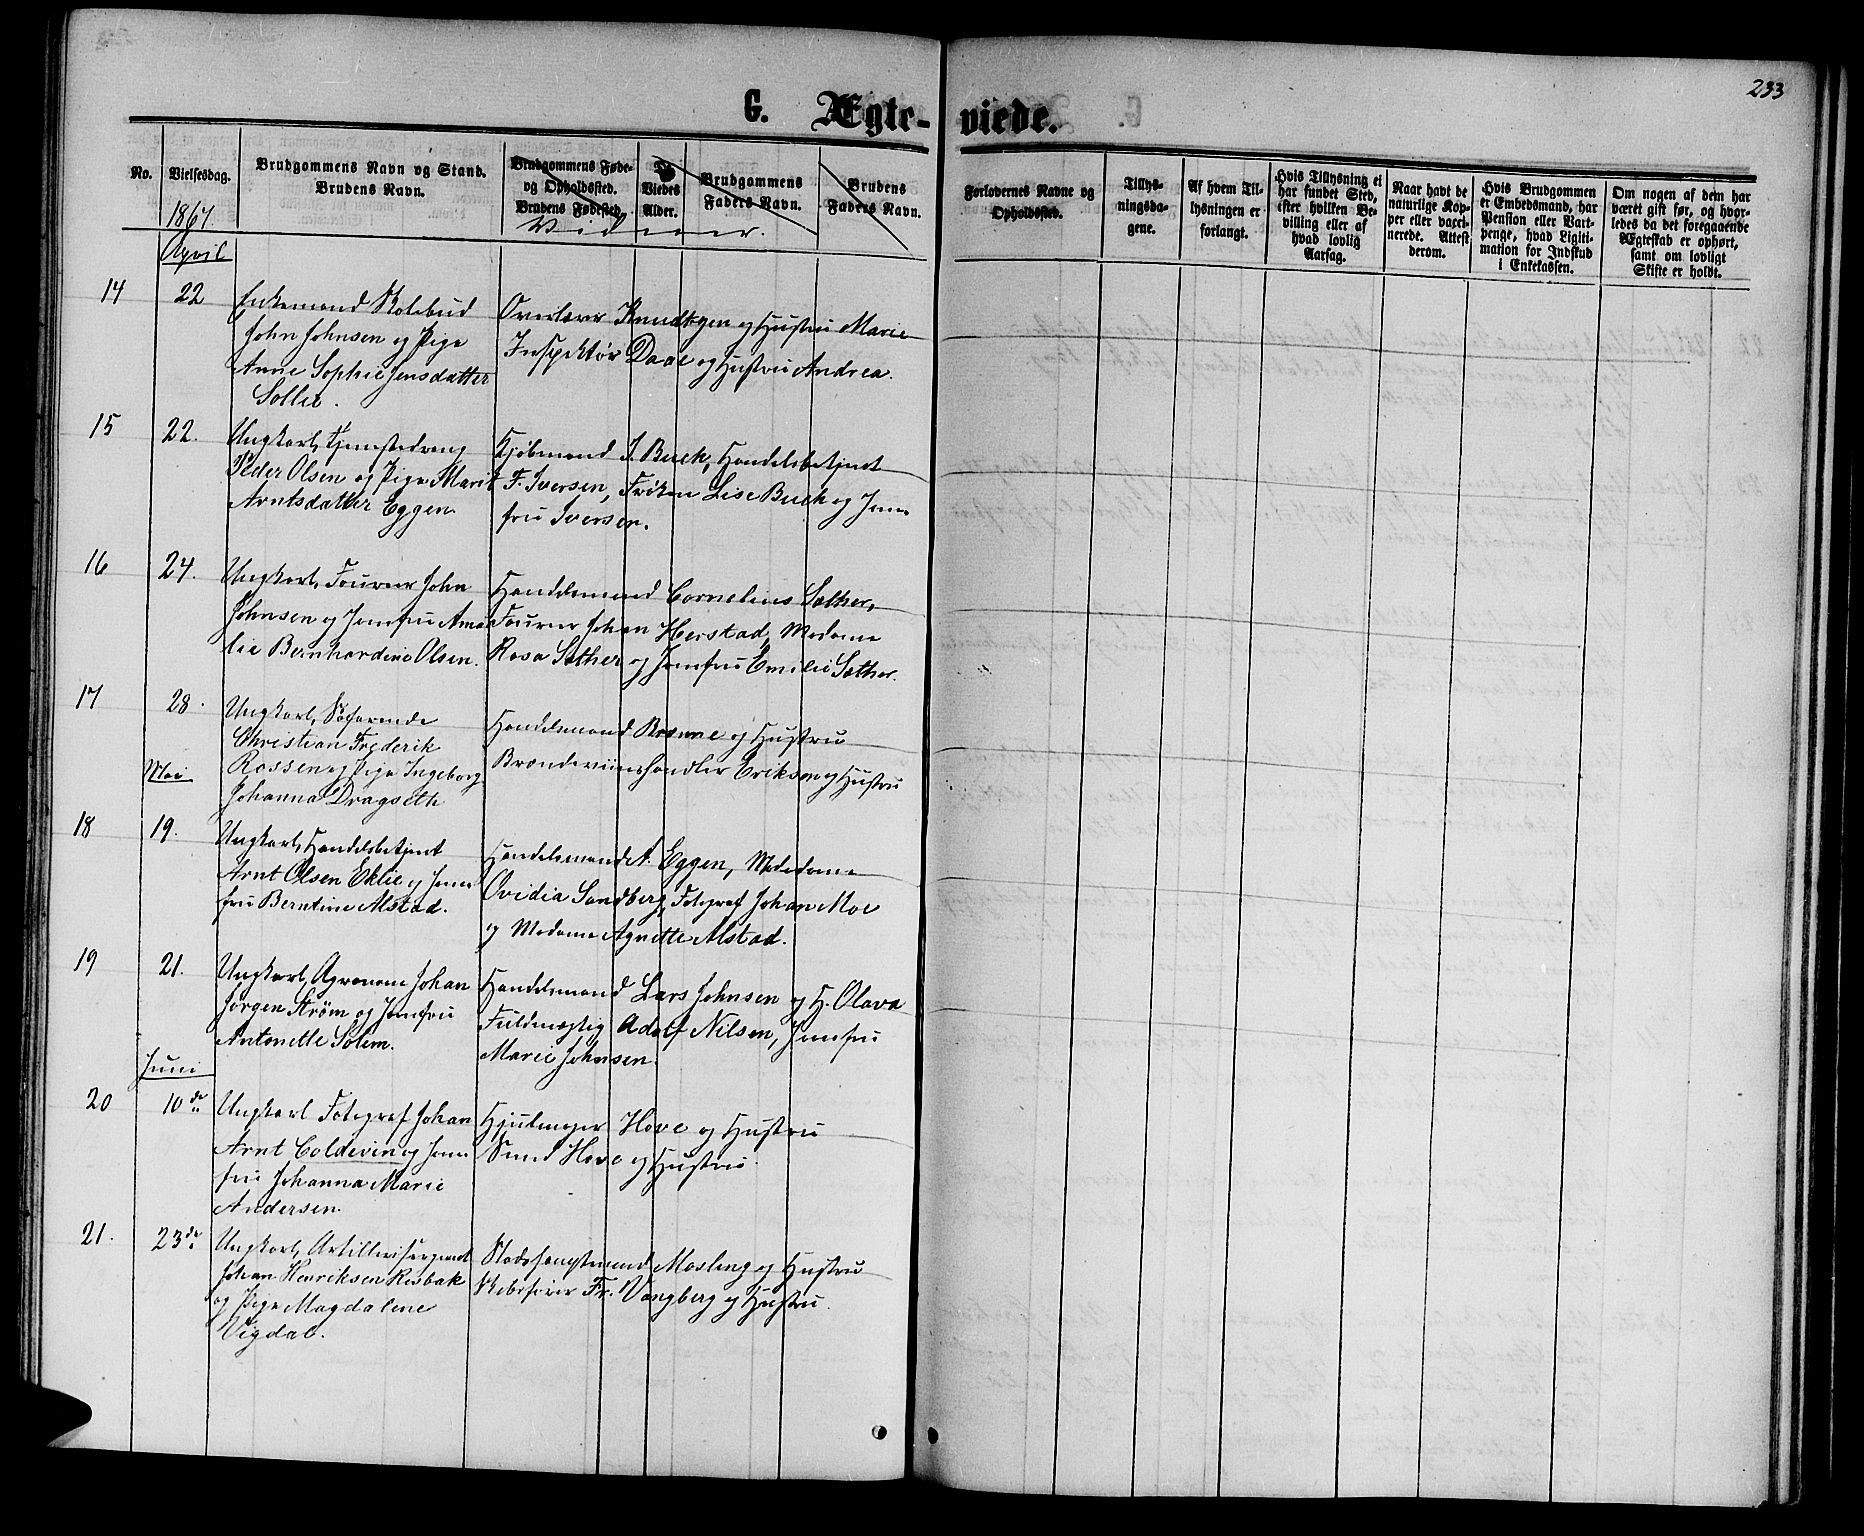 233
G. Ægte-viede.
No.
Vielsesdag.
Brudgommens Navn og Stand.
Brudens Navn.
Brudgommens Føde-
og Opholdssted.
Brudens Fødested.
De
Viedes
Alder.
Brudgommens
Faders Navn.
Brudens
Faders Navn.
Vidner.
Forlovernes Navne og
Opholdssted.
Tillys-
ningsda-
gene.
Af hvem Til-
lysningen er
forlangt.
Hvis Tillysning ei
har fundet Sted,
efter hvilken Be-
villing eller af
hvad lovlig
Aarsag.
Naar havt de
naturlige Kop-
per eller vaxci-
nerede. Attest
derom.
Hvis Brudgommen
er Embedsmand, har
Pension eller Vart-
penge, hvad Ligiti-
mation for Indskud
i Enkekassen.
Om nogen af dem har
været gift før, og hvor-
ledes da det foregaaende
Ægteskab er ophørt,
samt om lovligt
Skifte er holdt.
1867.
April
14
22
Enkemand Skolebud
John Johnsen og Pige
Anne Sophie Jensdatter
Sollie.
Overlærer Knudtzen og Hustru Marie
Inspektør Daae og Hustru Andrea.
15
22.
Ungkarl, Tjenestedreng
Peder Olsen og Pige Marit
Arntsdatter Eggen
Kjøbmand I. Buck, Handelsbetjent
F. Iversen, Frøken Lise Buck og Jom-
fru Iversen.
16
24.
Ungkarl, Fourer John
Johnsen og Jomfru Ama-
lie Bernhardine Olsen.
Handelsmand Cornelius Sæther,
Fourer Johan Herstad, Madame
Rosa Sæther og Jomfru Emilie Sæther.
17
28.
Ungkarl, Søfarende
Christian Frederik
Rossen og Pige Ingeborg
Johanna Dragseth
Handelsmand Brønne og Hustru
Brændeviinshandler Eriksen og Hustru
Mai
18
19.
Ungkarl, Handelsbetjent
Arnt Olsen Eklie og Jom-
fru Berntine Alstad.
Handelsmand A. Eggen, Madame
Ovidia Sandberg, Fotograf Johan Moe
og Madame Agnette Alstad.
19
21.
Ungkarl, Agronom Johan
Jørgen Strøm og Jomfru
Antonette Solem.
Handelsmand Lars Johnsen og H. Olava
Fuldmægtig Adolf Nilsen, Jomfru
Marie Johnsen.
Juni
20
10de
Ungkarl Fotograf Johan
Arnt Coldevin og Jom-
fru Johanna Marie
Andersen.
Hjulmager Hove og Hustru
Smed Hove og Hustru.
21.
23de
Ungkarl, Artillerisergeant
Johan Henriksen Risbak
og Pige Magdalene
Vigdal.
Stadshauptmand Mosling og Hustru
Skibsfører Fr. Vangberg og Hustru.